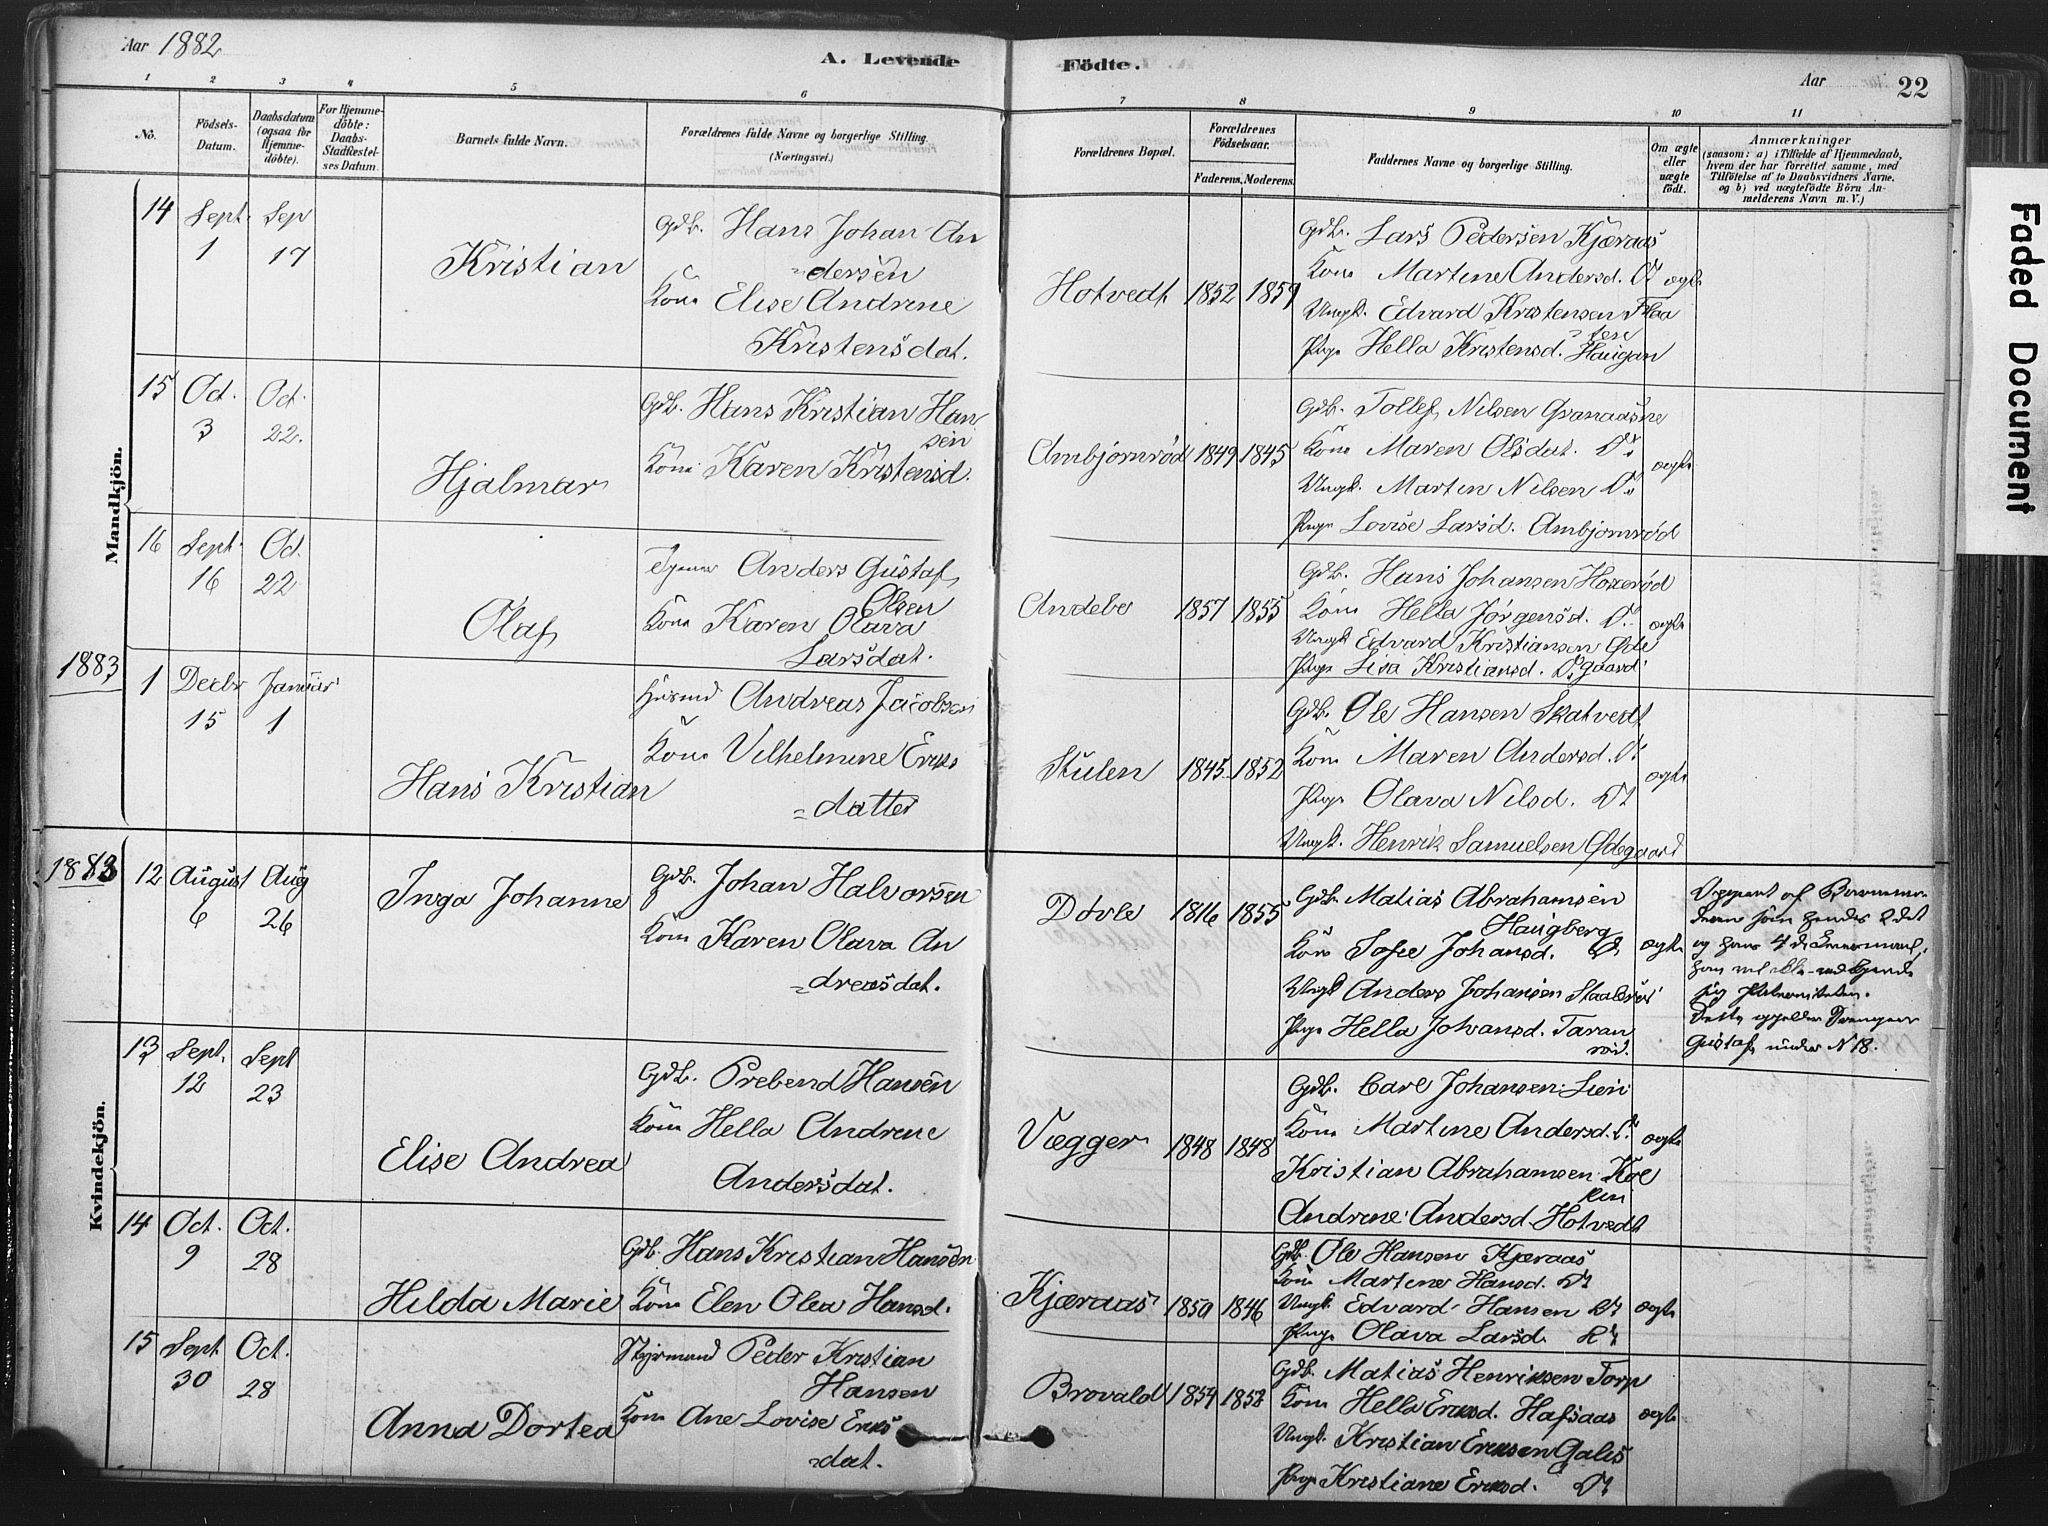 Aar 1882
A. Levende Födte.
Aar 22
1 2 3 4 5 6 7 8 9 10 11
No.
Födsels-Datum.
Daabsdatum (ogsaa for Hjemme-döbte).
For Hjemme-döbte: Daabs-Stadfæstel-ses Datum.
Barnets fulde Navn.
Forældrenes fulde Navne og borgerlige Stilling.
(Næringsvei.)
Forældrenes Bopæl.
Forældrenes Födselsaar.
Faderens. Moderens.
Faddernes Navne og borgerlige Stilling.
Om ægte eller uægte födt.
Anmærkninger
(saasom: a) i Tilfælde af Hjemmedaab, hvem der har forrettet samme, med Tilföielse af to Daabsvidners Navne. og b) ved uægtefödte Börn An-melderens Navn m. V.)
Faded Document
Mandkjön.
14 Sept. 1 Sep 17
Kristian
Gdb. Hans Johan An
dersen
Kone Elise Andrine
Kristensdat.
Hotvedt 1852 1859
Gdb. Lars Pedersen Kjæraas
Kone Martine Andersd. Dº
Ungk. Edvard Kristensen Flaa
tere
Pige Hella Kristensd. Haugan
ægte
15 Oct. 3 Oct. 22.
Hjalmar
Gdb. Hans Kristian Han
sen
Kone Karen Kristensd.
Ambjornrød 1849 1845
Gdb. Tollef Nilsen Granaasne
Kone Maren Olsdat. Dº
Ungk. Martin Nilsen Dº
Pige Lovise Larsd. Ambjornrød
ægte
16 Sept. 16 Oct. 22
Olaf
Tjener Anders Gustaf
Olsen
Kone Karen Olava
Larsdat.
Andebo 1857 1855
Gdb. Hans Johansen Hoxerød
Kone Hella Jørgensd. Dº
Ungk Edvard Kristiansen Øde
Pige Lisa Kristiansd. Dº gaard
ægte
1883
1 Decbr 15 Januar 1
Hans Kristian
Husmd Andreas Jacobsen
Kone Vilhelmine Eriks
datter
Stulen 1845 1852
Gdb. Ole Hansen Skatvedt
Kone Maren Andersd. Dº
Pige Olava Nilsd. Dº
Ungk. Henrik Samuelsen Ødegaard
ægte
Kvindekjön.
1883
12 August 6 Aug 26
Inga Johanne
Gdb. Johan Halvorsen
Kone Karen Olava An
dreasdat.
Døvle 1816 1855
Gdb. Matias Abrahamsen
Haugberg
Kone Sofie Johansd. Dº
Ungk Anders Johansen
Pige Hella Johansd. Taran
rød.
ægte
Opgivet af Barnemo-
deren som hendes 2det
og hans 4de
han vil ikke vedkjende
sig Paterniteten.
Dette gjelder Drengen
Gustaf under N 18.
13 Sept. 12 Sept 23
Elise Andrea
Gdb. Prebend Hansen
Kone Hella Andrine
Andersdat.
Vægger 1848 1848
Gdb. Carl Johansen Lien
Kone Martine Andersd. Dº
Kristian Abrahamsen Kol
Andrine Andersd. Hotvedt
ægte
14 Oct. 9 Oct. 28
Hilda Marie
Gdb. Hans Kristian Hansen
Kone Elen Olea Hansd.
Kjæraas 1850 1846
Gdb. Ole Hansen Kjæraas
Kone Martine Hansd. Dº
Ungk. Edvard Hansen Dº
Pige Olava Larsd. Dº
ægte
15 Sept 30 Oct. 28
Anna Dortea
Styrmand Peder Kristian
Hansen
Kone Ane Lovise Eriks
dat.
Brovald 1854 1858
Gdb. Matias Henriksen Torp
Kone Hella Eriksd. Hafsaas
Ungk. Kristian Eriksen Galis
Pige Kristiane Eriksd. Dº
ægte